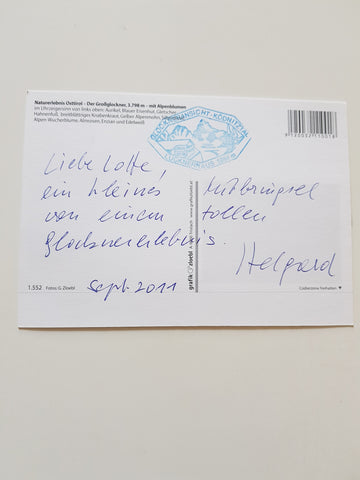 Naturerlebnis Osttirol - Der Großglockner, 3.798 m - mit Alpenblumen
im Uhrzeigersinn von links oben: Aurikel, Blauer Eisenhut, Gletscher-
Hahnenfuß, breitblättriges Knabenkraut, Gelber Alpenmohn,
Alpen Wucherblume, Almrosen, Enzian und Edelweiß
Liebe Lotte,
ein kleines Mitbringsel
von einem tollen
Glocknererlebnis.
Helgard
Sept. 2011
1.552 Fotos: G. Zlœbl
grafik zloebl